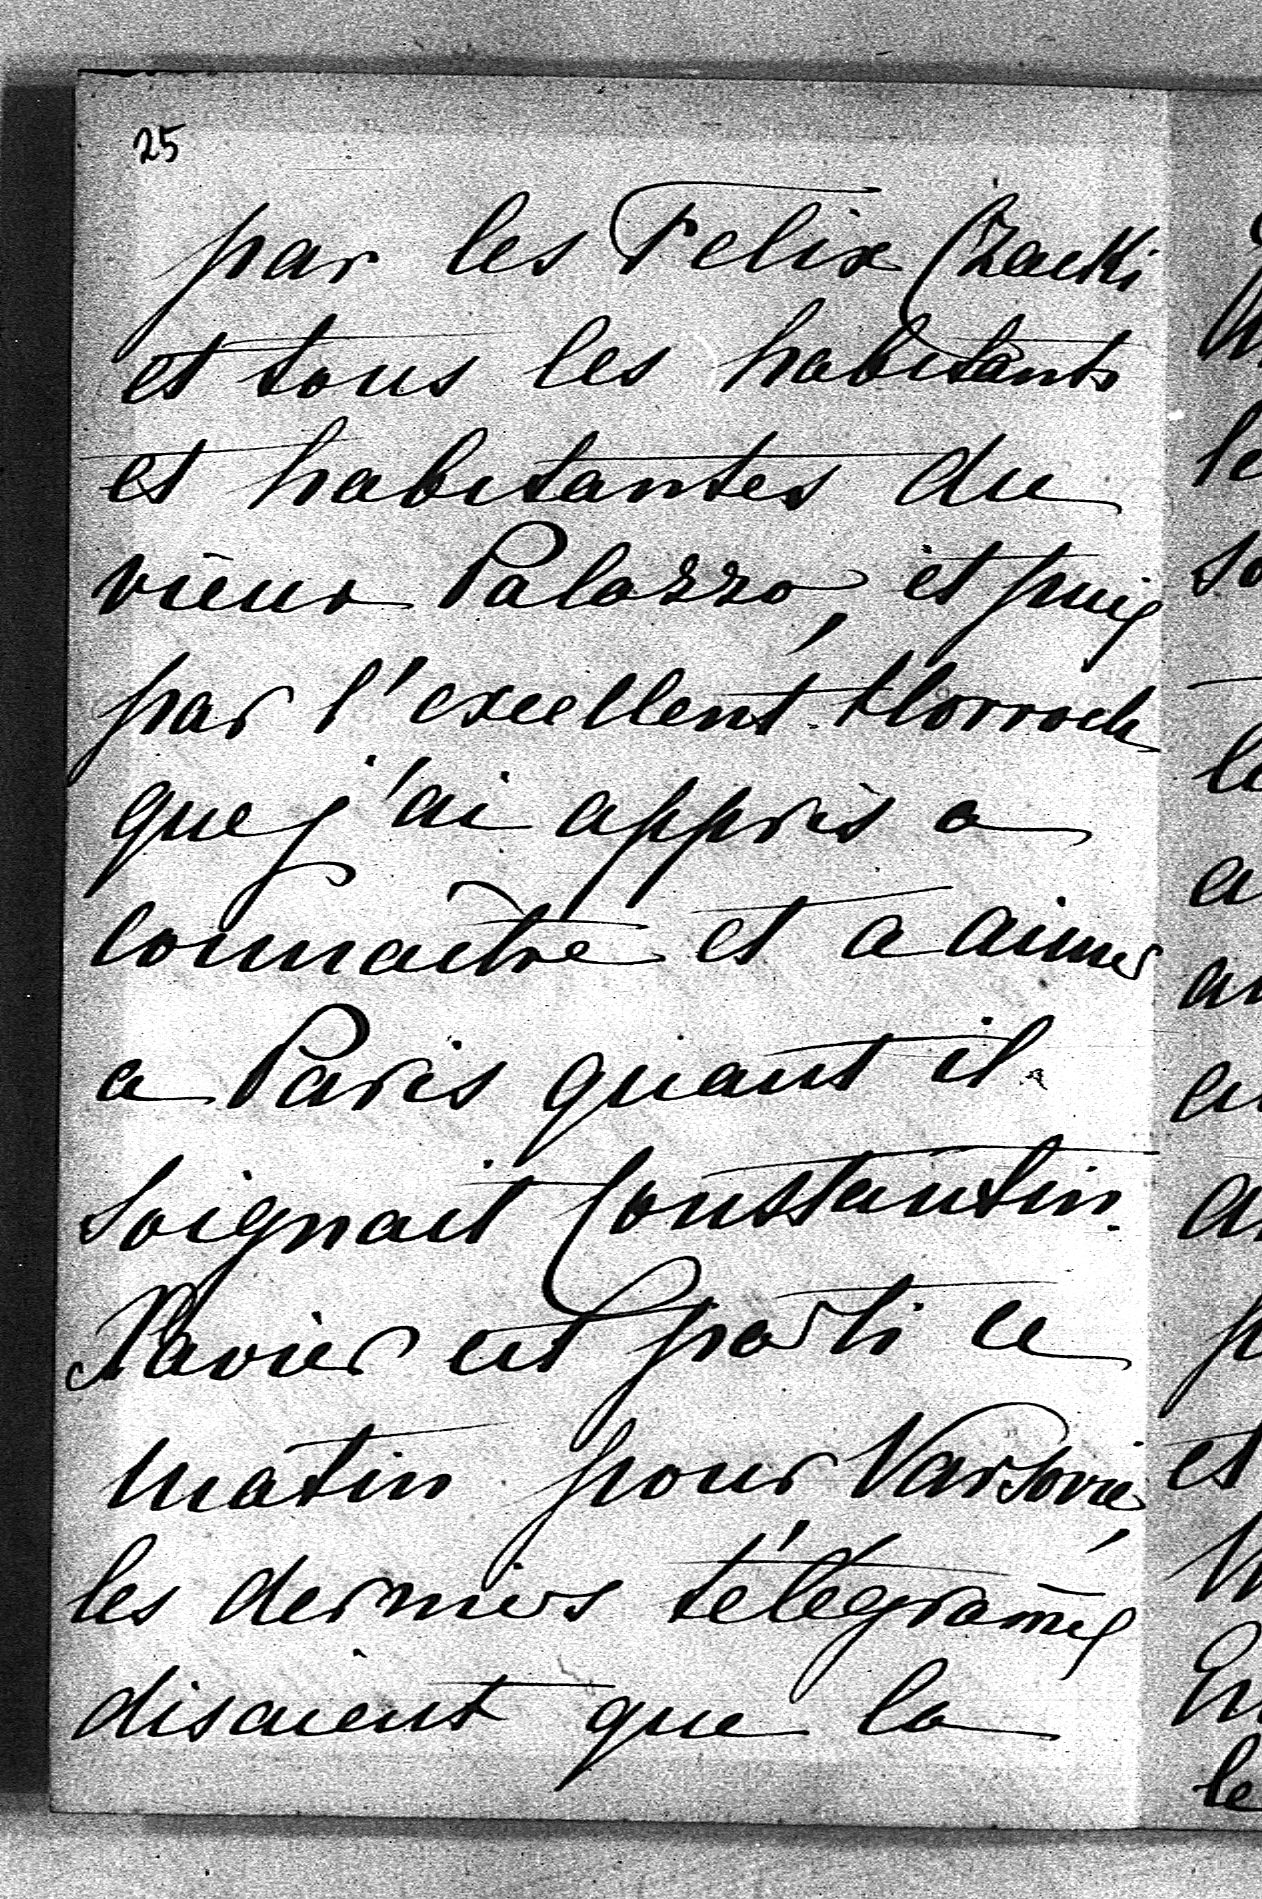 25
par les Felix Czacki
et tous les habitants
et habitantes du
vieux Palazzo, et puis
par l'excellent
que j'ai appris a
connaître et a aimer
a Paris quant il
soignait Constantin.
Xavier est parti ce
matin pour Varsovie
les derniers télégram̄es
disaient que la